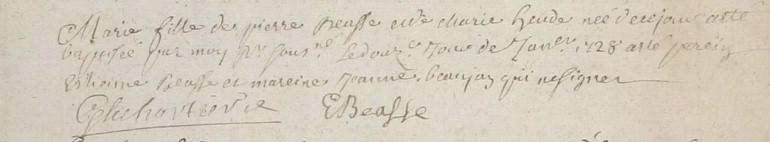 Marie fille de pierre Beasse et de marie hende née de ce jour a eté
baptisée par moy pr. sous né le douze jour de Janer 1728 a eté parein
Estieinne Beasse et mareine Jeanne beaujan qui ne signe
EBeasse